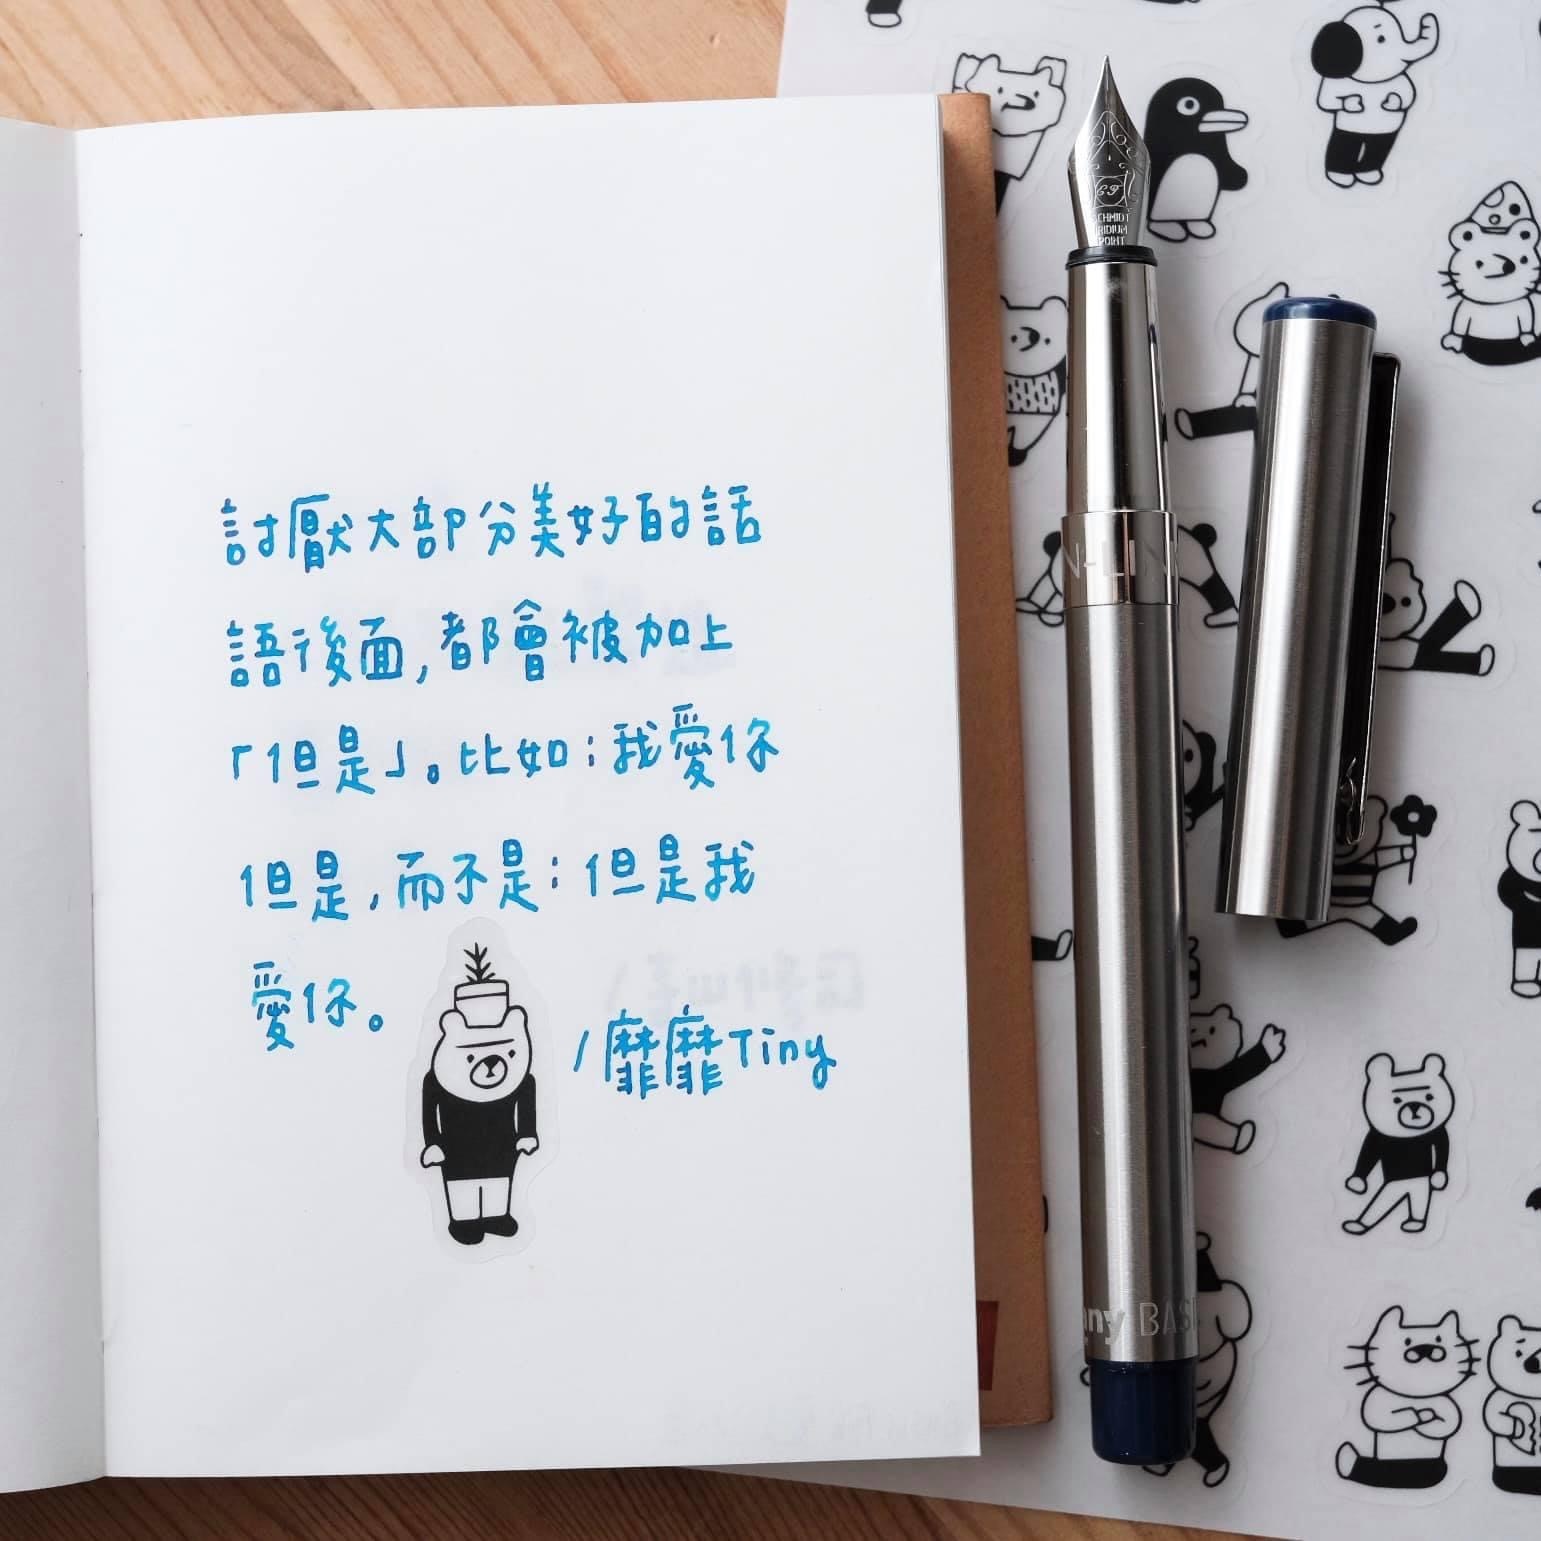 討厭大部分美好的話
語後面,都會被加上
「但是」。比如:我愛你
但是,而不是:但是我
愛你。
/靡靡Tiny
SCHMIDT
IRIDIUM
POINT
N-LIN
nny BAS